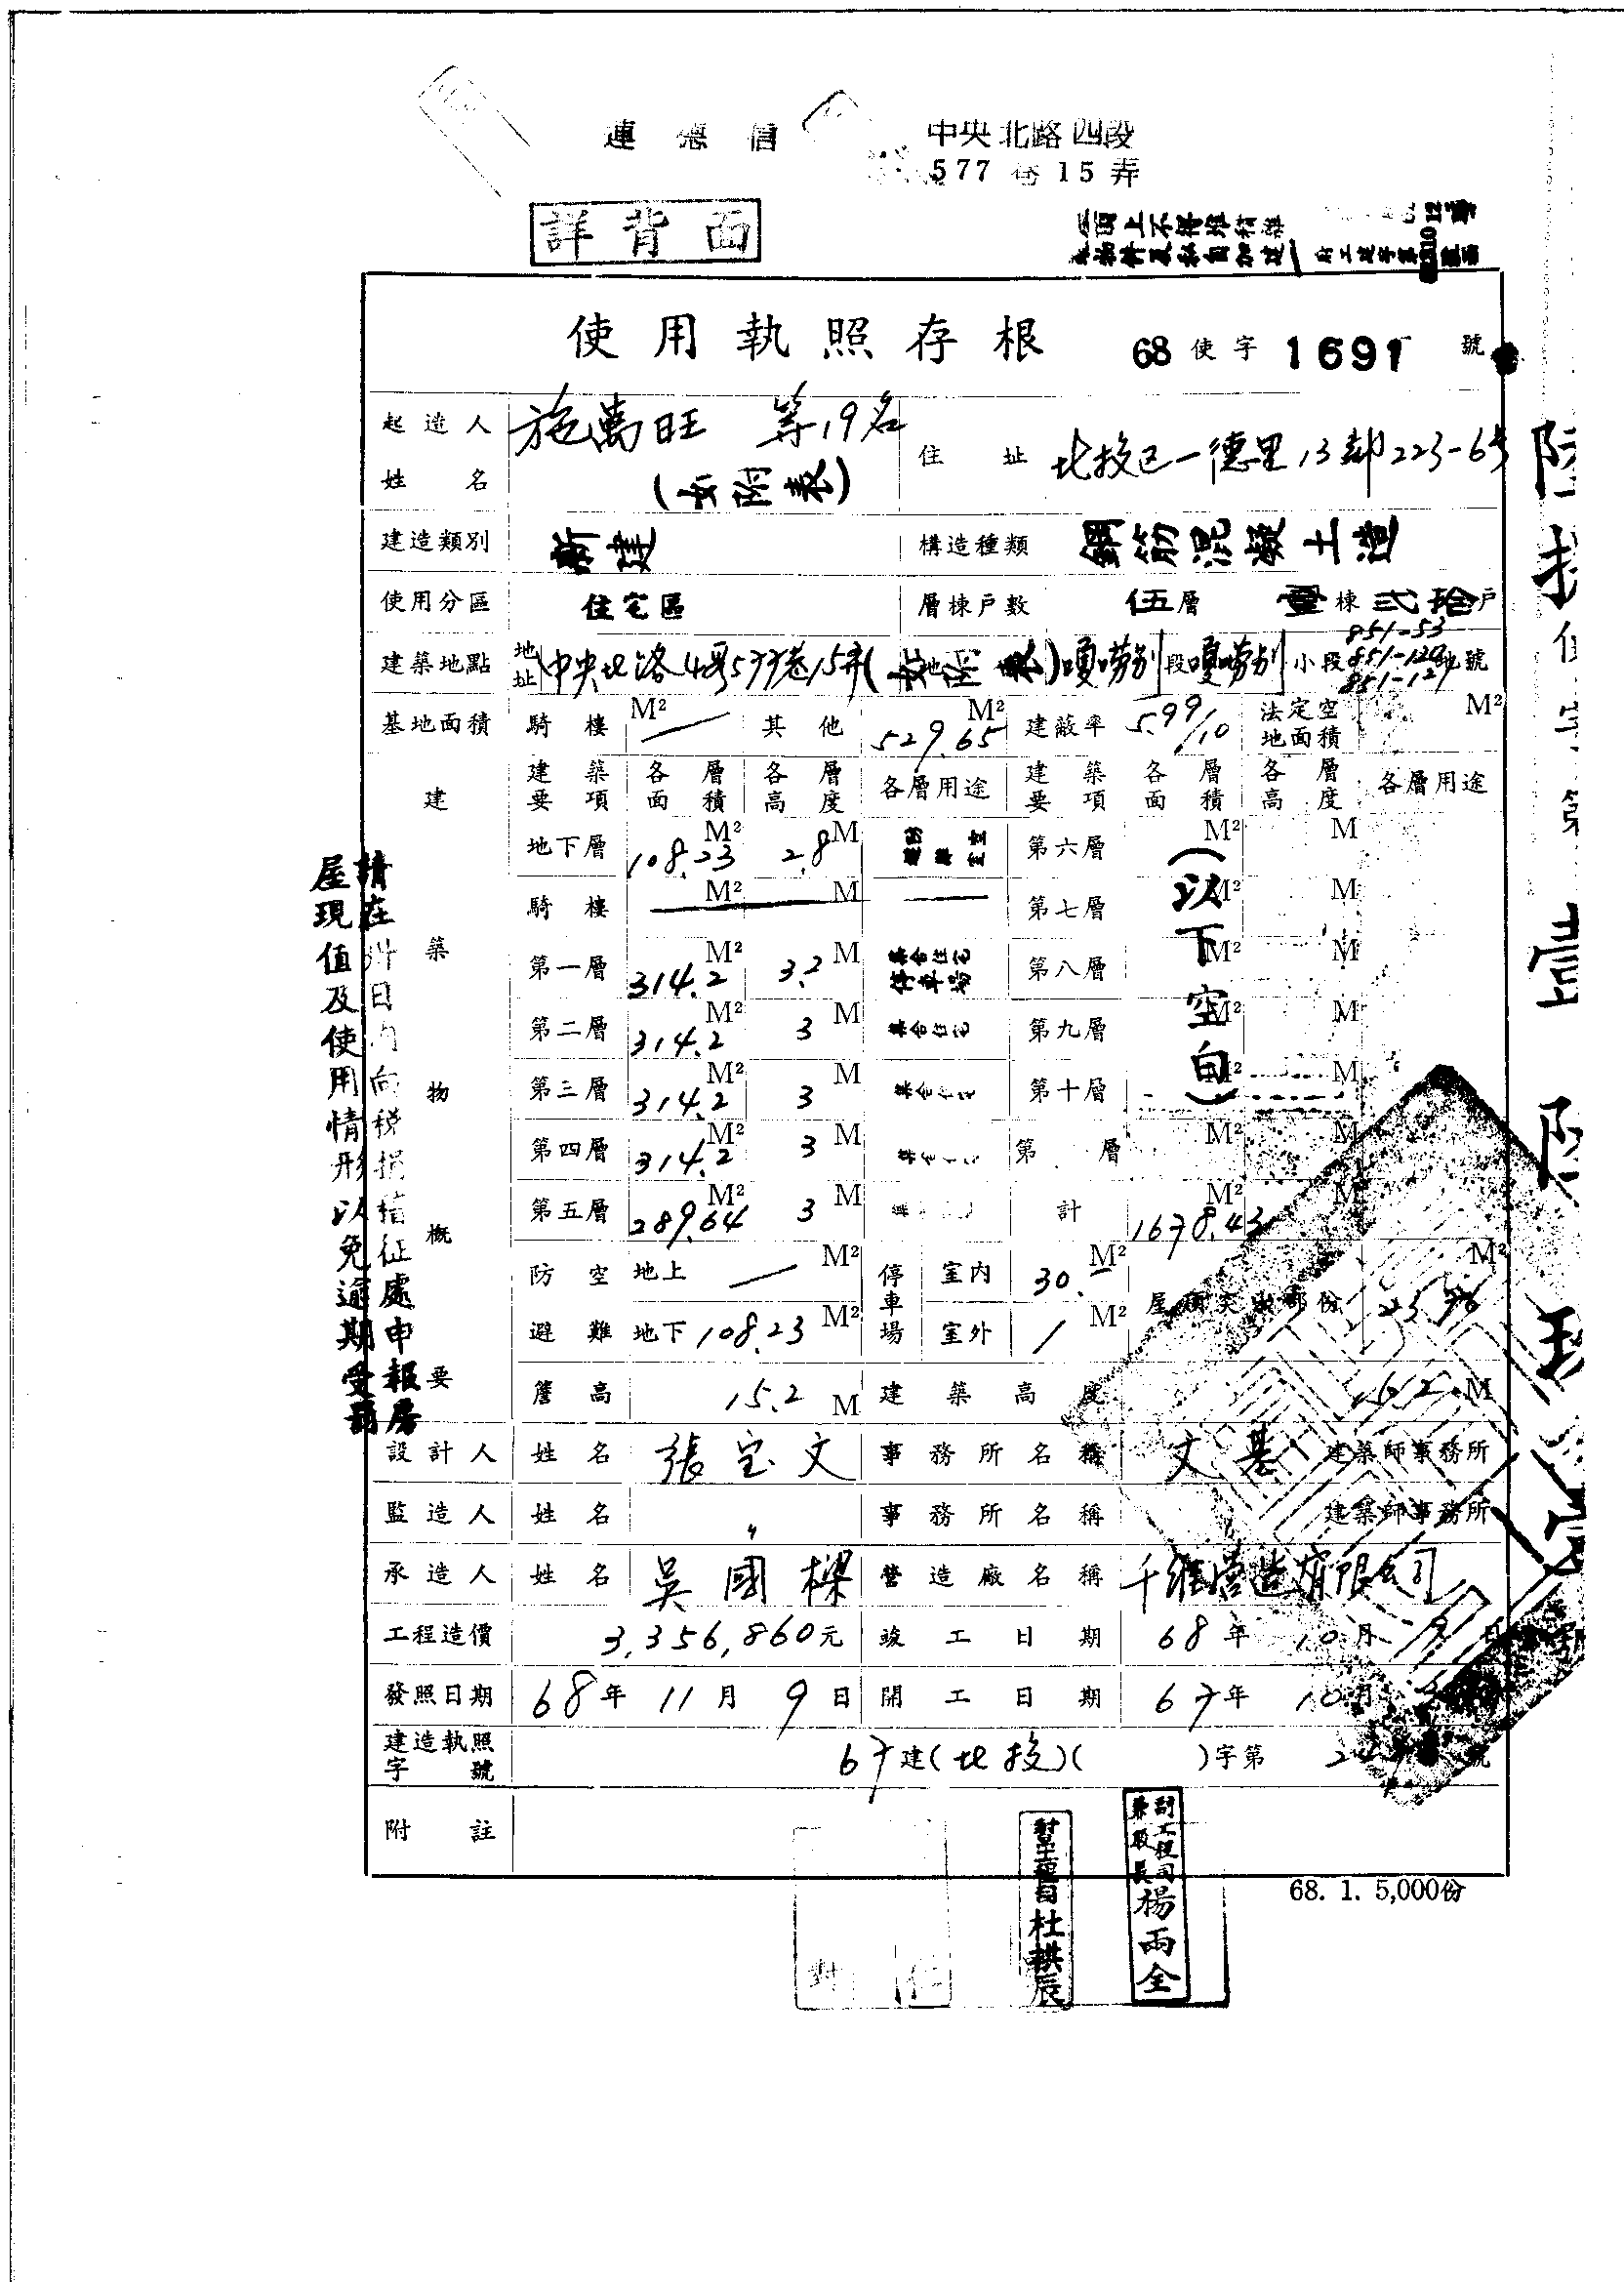 中央北路四段
577巷15弄
詳背面
使用執照存根 68使字1691號
起造人姓名 施萬旺 等19名 (如附表) 住址 北投區一德里13鄰223-6號
建造類別 新建 構造種類 鋼筋混凝土造
使用分區 住宅區 層棟戶數 伍層 壹棟 弍拾戶
建築地點 地址 中央北路4段577巷15弄 地 嗄嘮別段嗄嘮別小段 851-53 851-120 851-127 地號
基地面積 騎樓 M² — 其他 529.65 M² 建蔽率 5.99/10 法定空地面積 M²
建築物概要
建築要項 各層面積 各層高度 各層用途 建築要項 各層面積 各層高度 各層用途
地下層 108.23 M² 2.8 M 第六層 M² M
騎樓 M² M — 第七層 M² M
第一層 314.2 M² 3.2 M 集合住宅 停車場 第八層 M² M
第二層 314.2 M² 3 M 集合住宅 第九層 M² M
第三層 314.2 M² 3 M 第十層 M² M
第四層 314.2 M² 3 M 第 層 M² M
第五層 289.64 M² 3 M 計 1678.43 M² M
(以下空白)
防空避難 地上 — M² 停車場 室內 30.- M² 屋頂突出部份 23.76 M²
地下 108.23 M² 室外 / M²
簷高 15.2 M 建築高度 M
設計人 姓名 張宝文 事務所名稱 文基 建築師事務所
監造人 姓名 〃 事務所名稱 建築師事務所
承造人 姓名 吳國樑 營造廠名稱 千維營造有限公司
工程造價 3,356,860元 竣工日期 68年10月 日
發照日期 68年11月9日 開工日期 67年10月
建造執照字號 67建(北投)( )字第 號
附註
請在卅日內向稅捐稽征處申報房
屋現值及使用情形以免逾期受罰
副工程司兼股長 楊兩全
68. 1. 5,000份